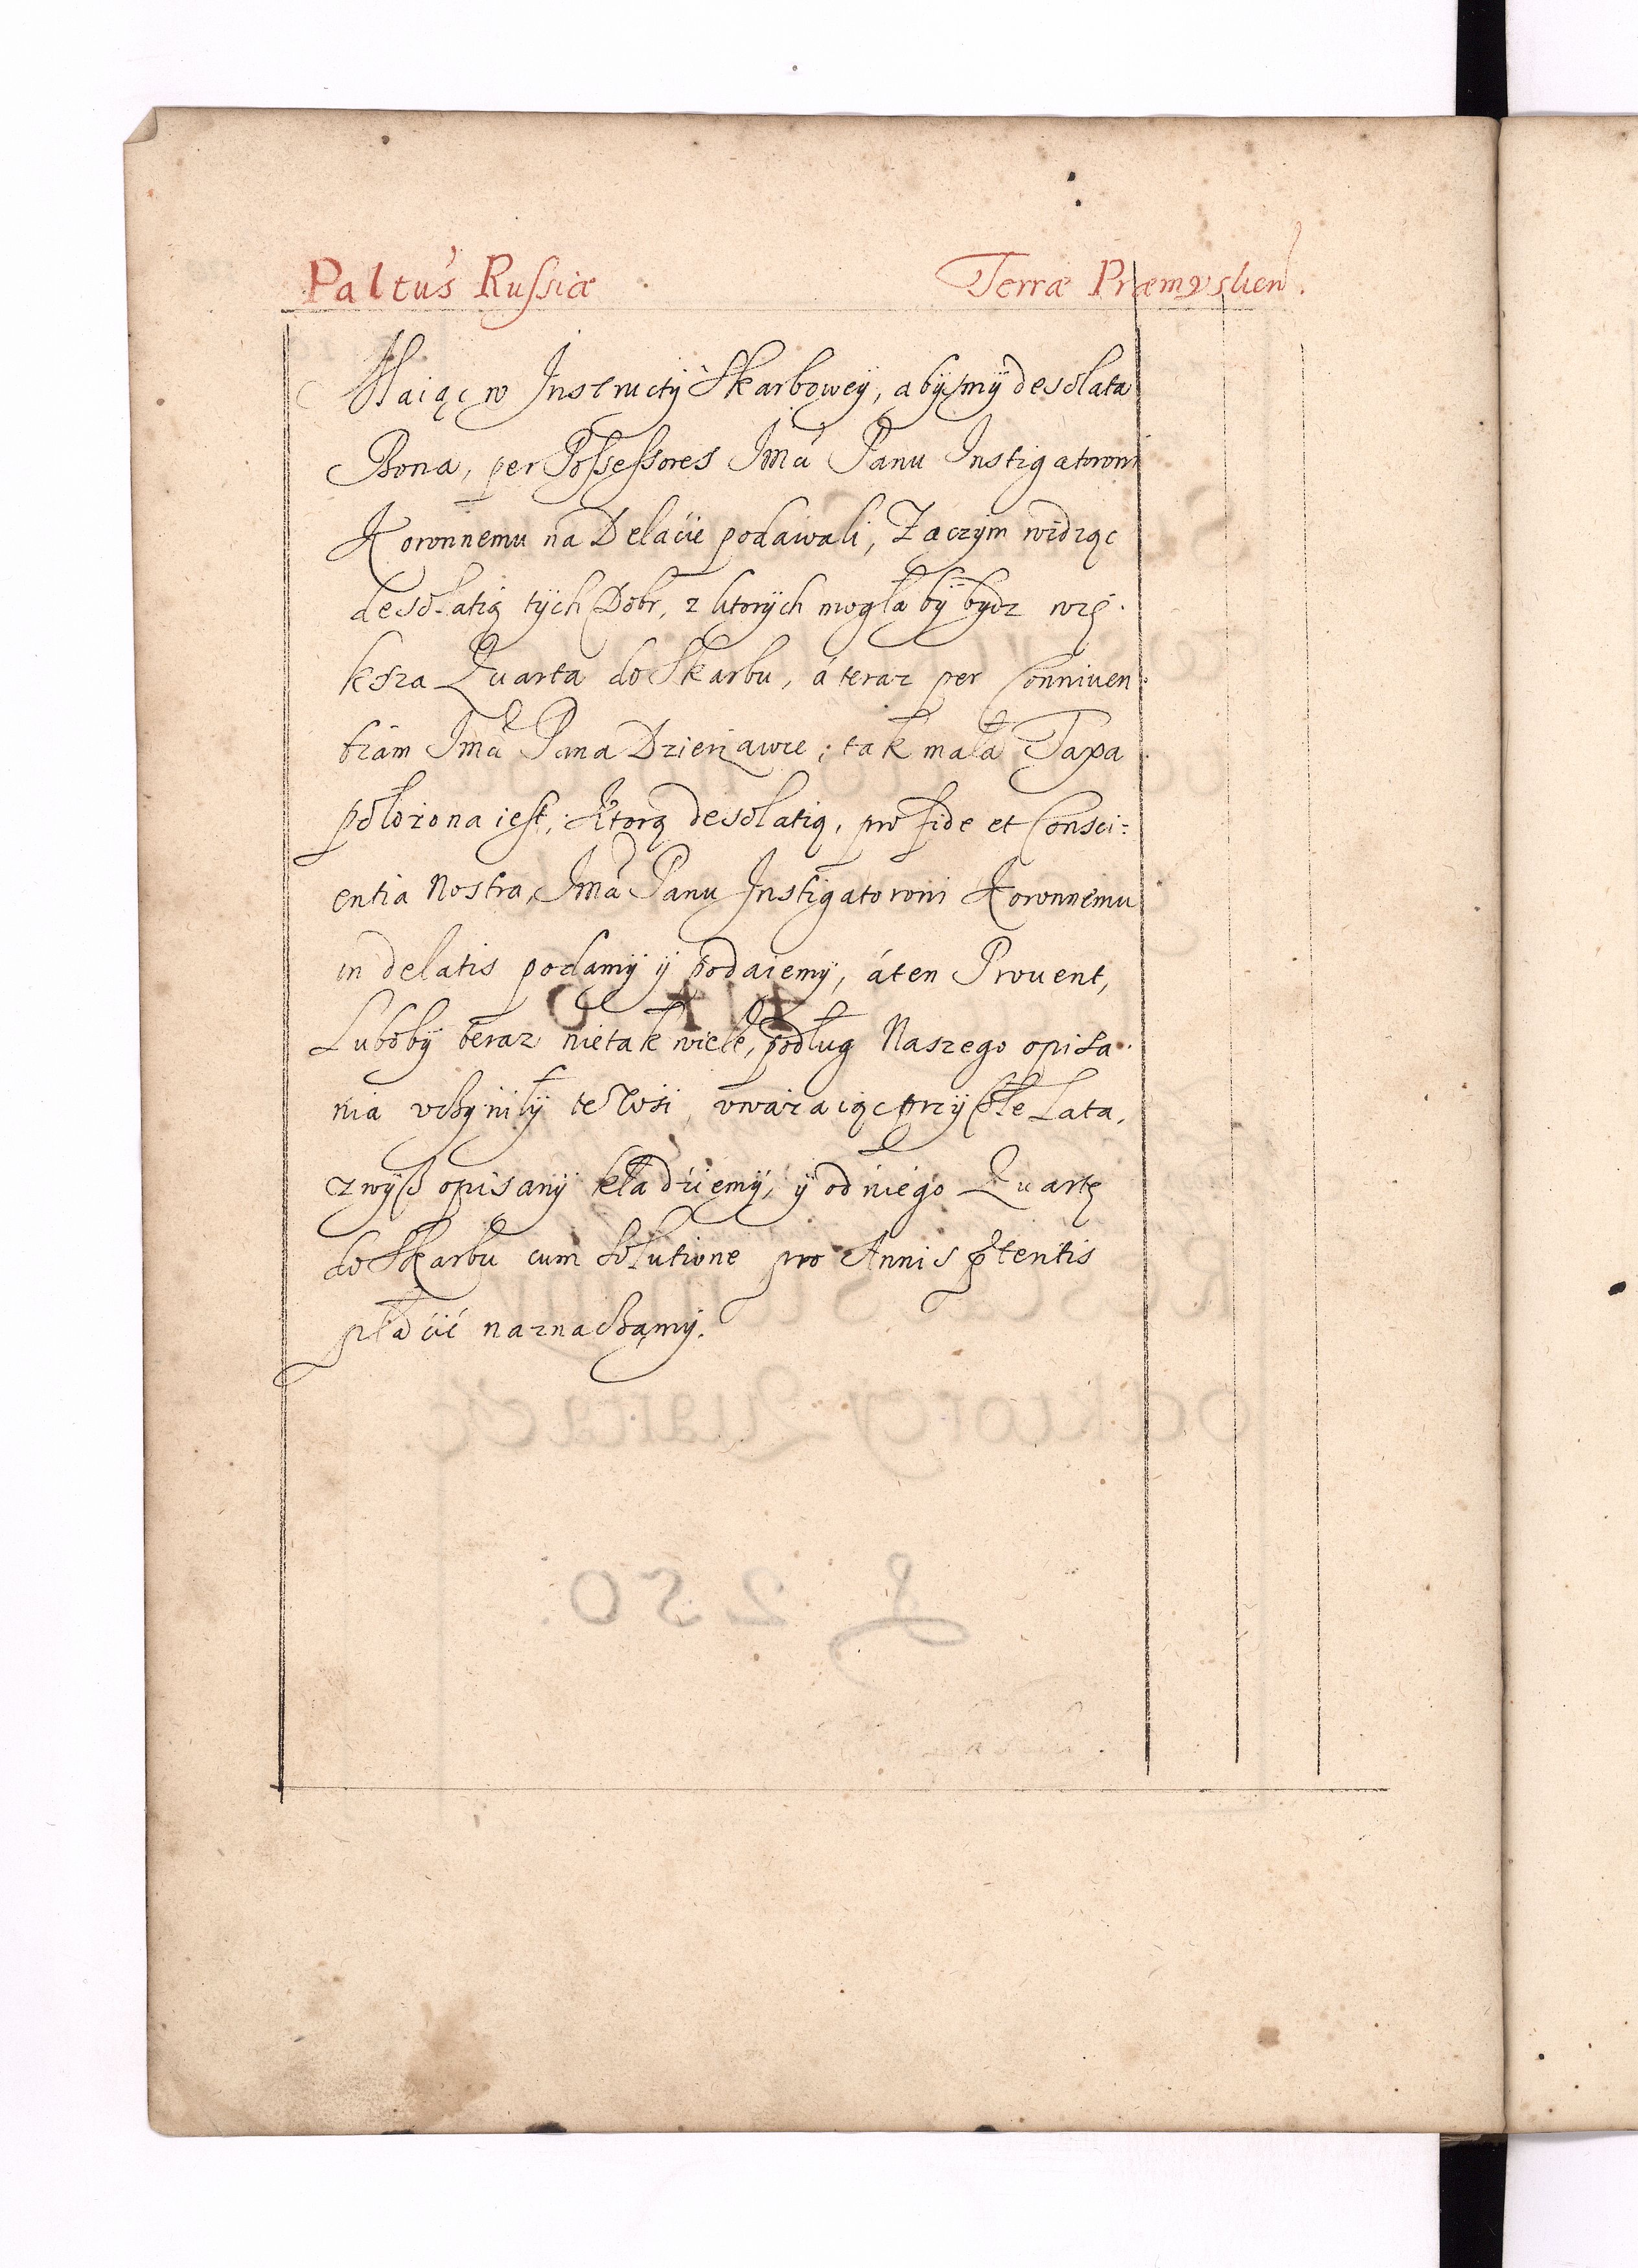 Paltus Russiæ Terræ Præmyslien.
Maiąc w Instructÿ Skarboweÿ, abÿsmÿ desolata
Bona, per Possessores Jmci Panu Instigatorowi
Koronnemu na Delacie podawali, Zaczÿm widząc
desolatią tÿch Dobr, z ktorÿch mogła bÿ bydz wię.
ksza Quarta do Skarbu, á teraz per Conniuen:
tiam Jmci Pana Dzierżawce; tak mała Taxa
położona iest; Ktorą desolatią, pro fide et Consci:
entia Nostra, Jmci Panu Instigatorowi Koronnemu
in delatis podamÿ ÿ podaiemÿ, á ten Prouent,
Lubobÿ teraz nietak wiele, podług Naszego opisa.
nia vczÿniłÿ te Wsi, vważaiąc przÿszłe Lata,
zwÿß opisanÿ kładziemÿ, ÿ od niego Quartę
do Skarbu cum solutione pro Annis ptentis
płacić naznaczamÿ.